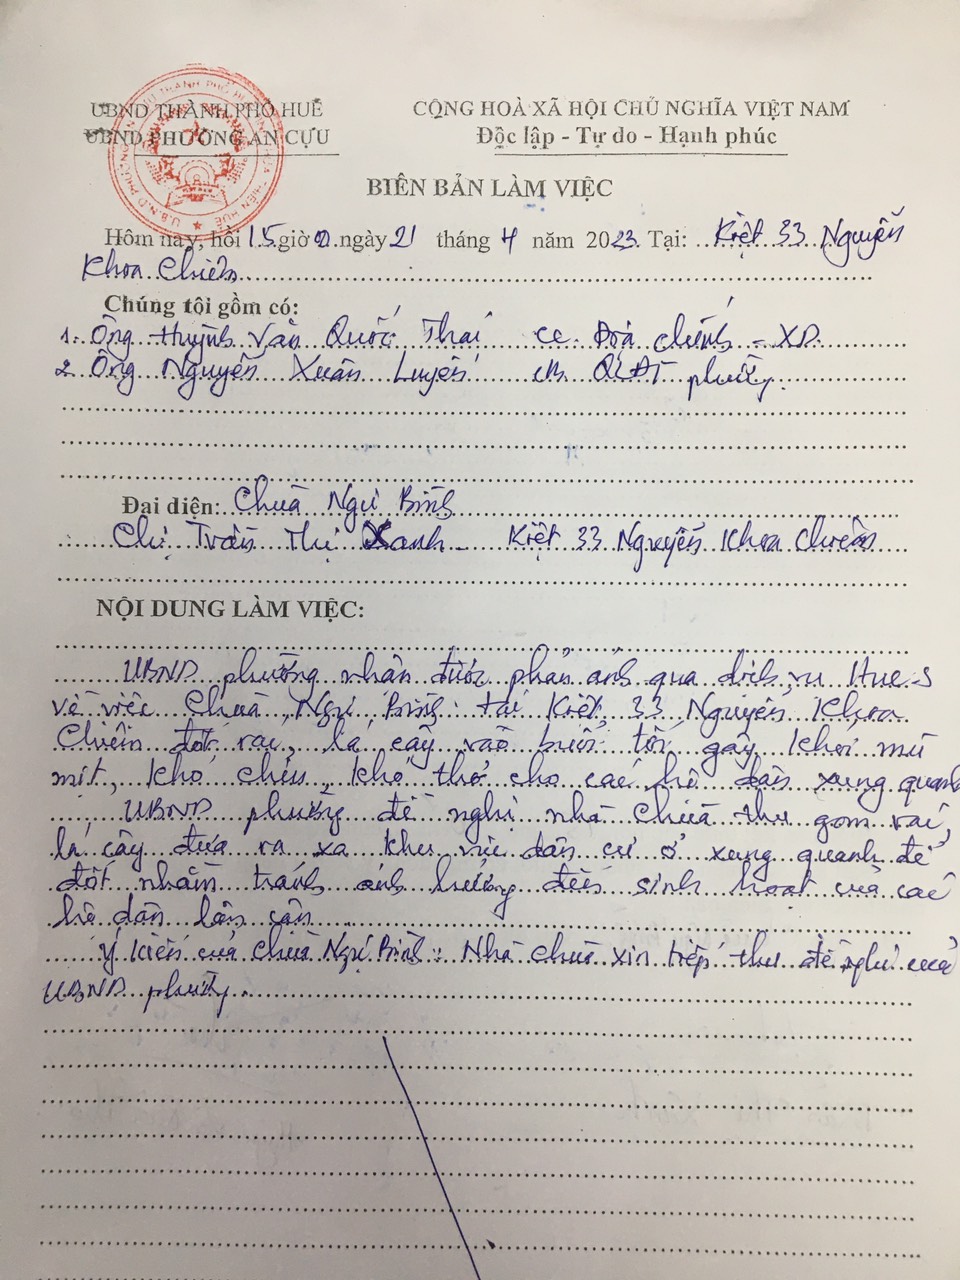 UBND THÀNH PHỐ HUẾ
UBND PHƯỜNG AN CỰU
CỘNG HOÀ XÃ HỘI CHỦ NGHĨA VIỆT NAM
Độc lập - Tự do - Hạnh phúc
BIÊN BẢN LÀM VIỆC
Hôm nay, hồi 15 giờ 00 ngày 21 tháng 4 năm 2023. Tại: Kiệt 33 Nguyễn
Khoa Chiêm
Chúng tôi gồm có:
1. Ông Huỳnh Văn Quốc Thái cc Địa chính - XD
2. Ông Nguyễn Xuân Luyến cb QLĐT phường.
Đại diện: Chùa Ngự Bình
Chị Trần Thị Xanh - Kiệt 33 Nguyễn Khoa Chiêm
NỘI DUNG LÀM VIỆC:
UBND phường nhận được phản ánh qua dịch vụ Hue-S
về việc Chùa Ngự Bình tại Kiệt 33 Nguyễn Khoa
Chiêm đốt rác, lá cây vào buổi tối gây khói mù
mịt, khó chịu, khó thở cho các hộ dân xung quanh
UBND phường đề nghị nhà Chùa thu gom rác,
lá cây đưa ra xa khu vực dân cư ở xung quanh để
đốt nhằm tránh ảnh hưởng đến sinh hoạt của các
hộ dân lân cận
Ý kiến của Chùa Ngự Bình: Nhà chùa xin tiếp thu đề nghị của
UBND phường.